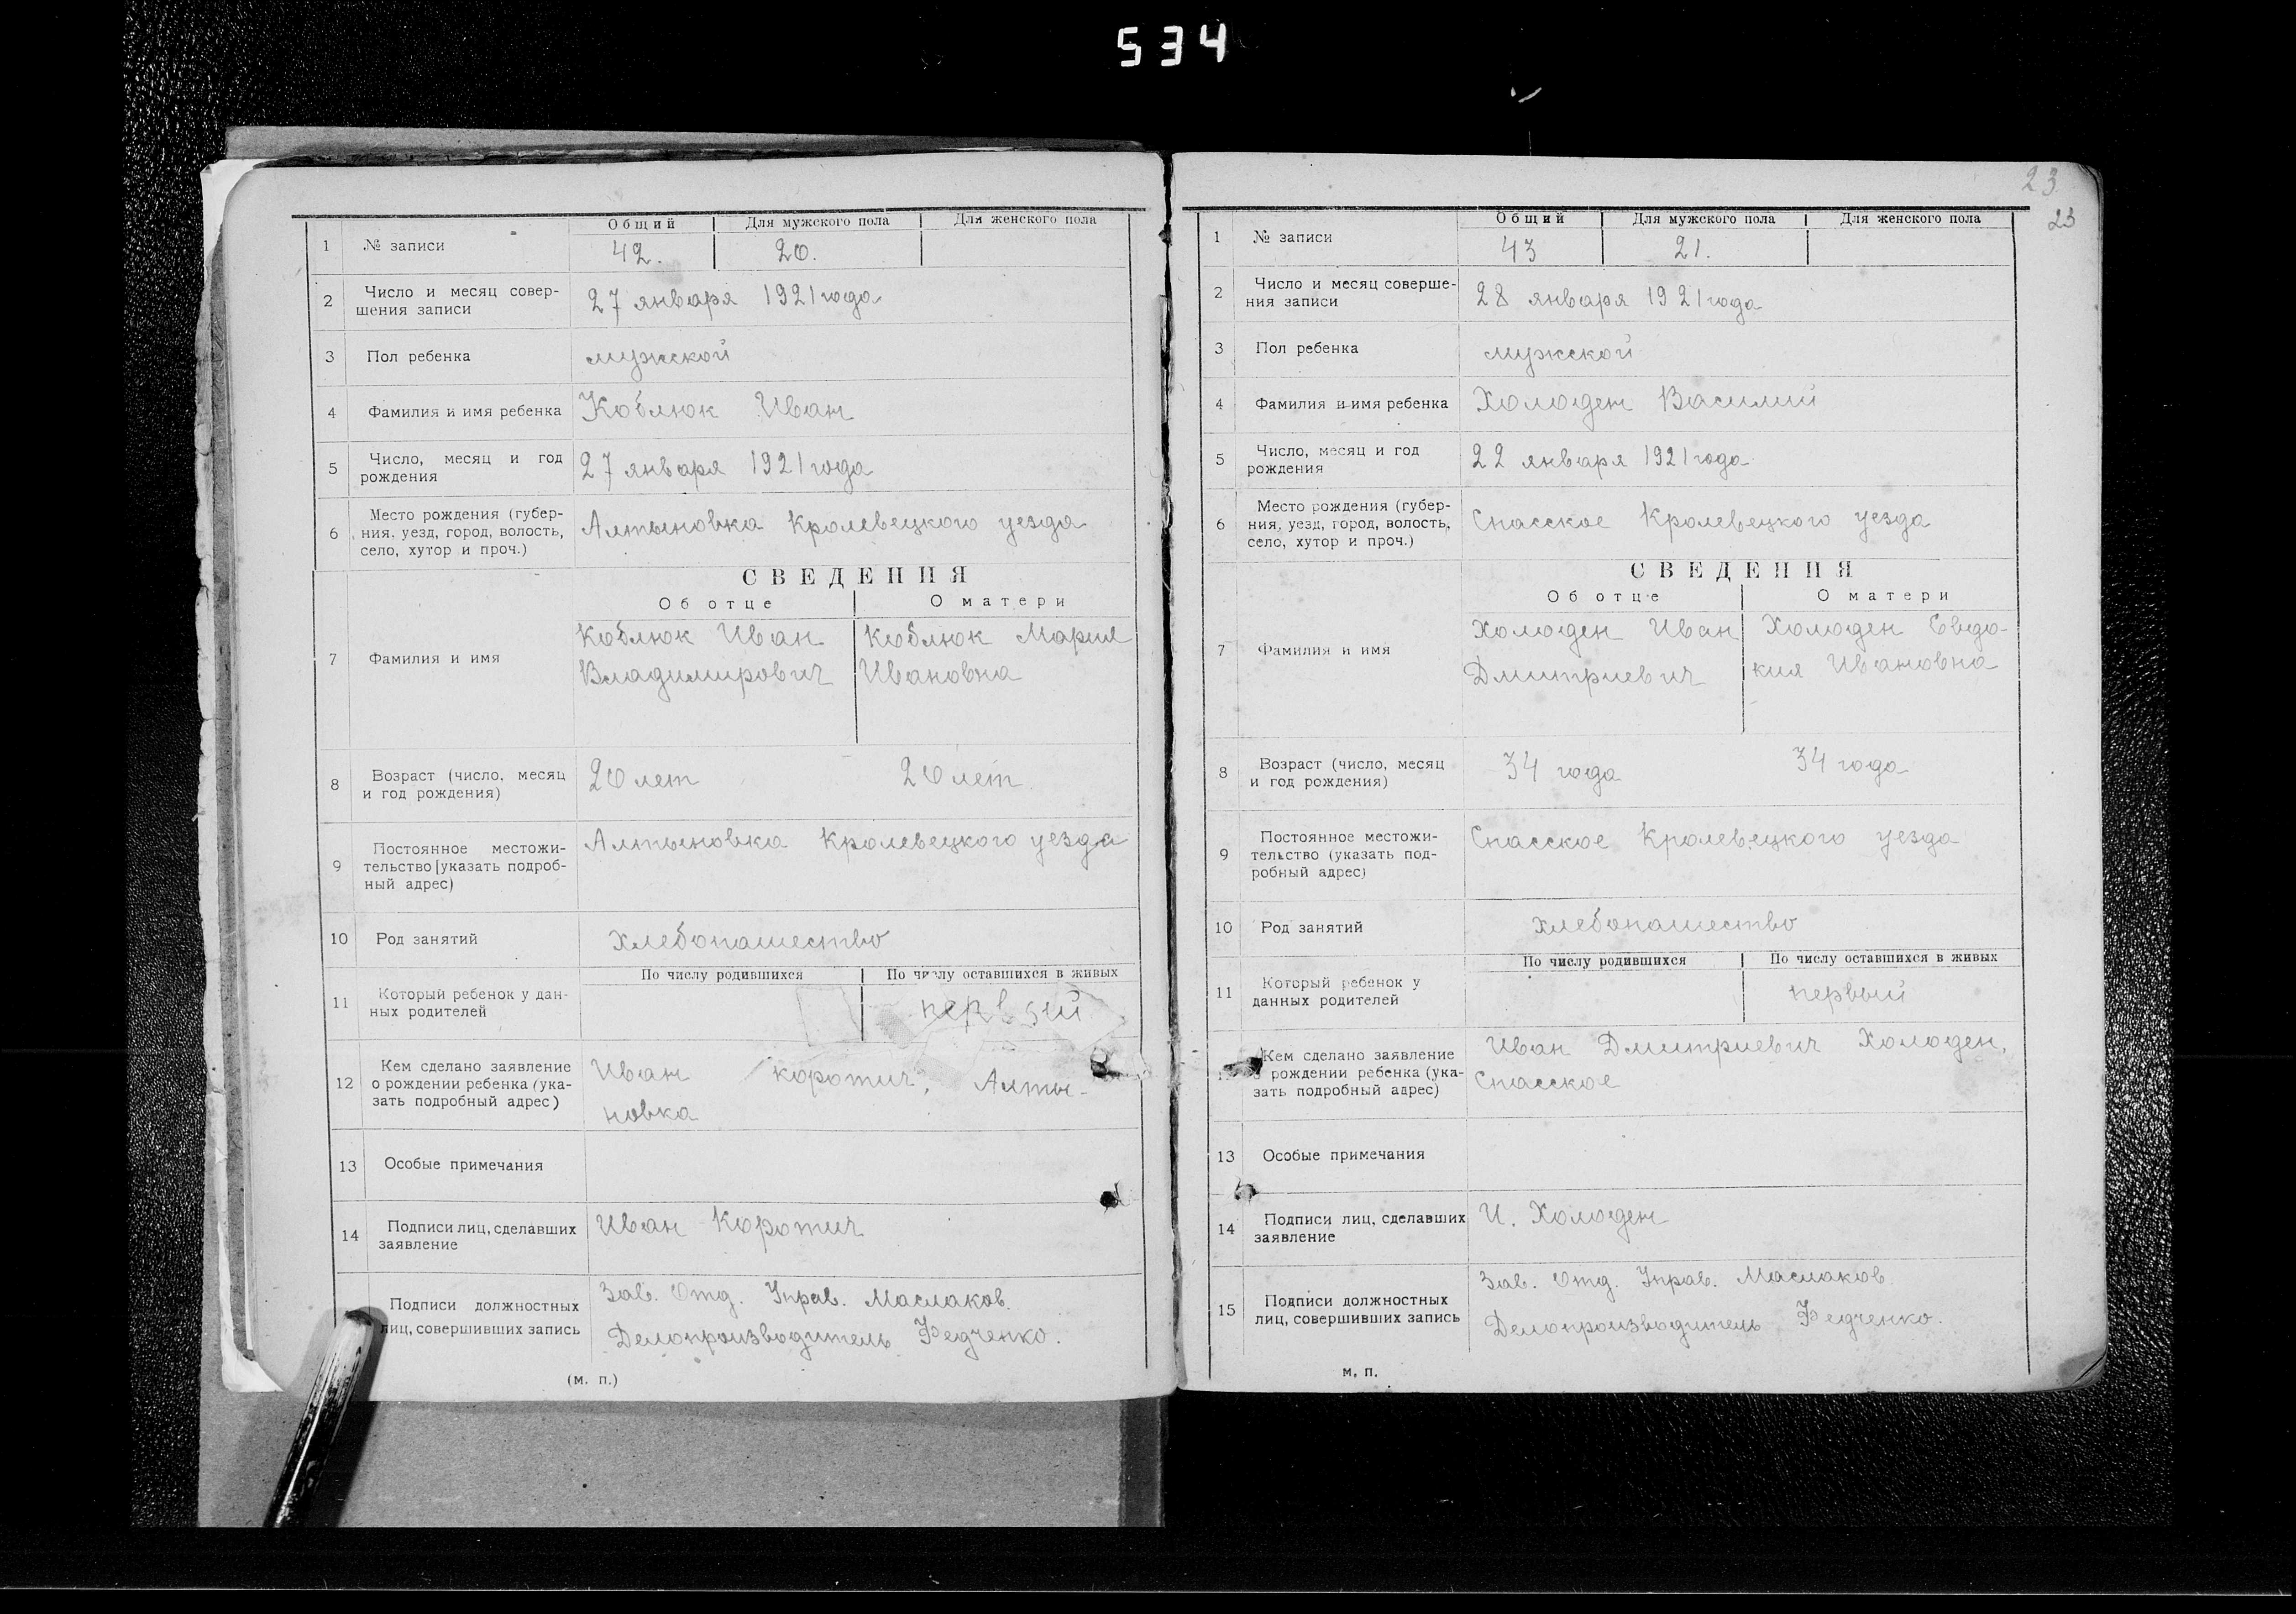 534
1 № записи
Общий Для мужского пола Для женского пола
42. 20.
2 Число и месяц совер-
шения записи
27 января 1921 года
3 Пол ребенка мужской
4 Фамилия и имя ребенка Коблюк Иван
5 Число, месяц и год
рождения
27 января 1921 года
6 Место рождения (губер-
ния, уезд, город, волость,
село, хутор и проч.)
Алтыновка Кролевецкого уезда
СВЕДЕНИЯ
Об отце О матери
7 Фамилия и имя
Коблюк Иван
Владимирович
Коблюк Мария
Ивановна
8 Возраст (число, месяц
и год рождения)
20 лет 20 лет
9 Постоянное местожи-
тельство (указать подроб-
ный адрес)
Алтыновка Кролевецкого уезда
10 Род занятий хлебопашество
11 Который ребенок у дан-
ных родителей
По числу родившихся По числу оставшихся в живых
первый
12 Кем сделано заявление
о рождении ребенка (ука-
зать подробный адрес)
Иван Коротич, Алты-
новка
13 Особые примечания
14 Подписи лиц, сделавших
заявление
Иван Коротич
Подписи должностных
лиц, совершивших запись
Зав. Отд. Управ. Маслаков.
Делопроизводитель Федченко.
(м. п.)
23
23
1 № записи
Общий Для мужского пола Для женского пола
43 21.
2 Число и месяц соверше-
ния записи
28 января 1921 года
3 Пол ребенка мужской
4 Фамилия и имя ребенка Холоден Василий
5 Число, месяц и год
рождения
22 января 1921 года
6 Место рождения (губер-
ния, уезд, город, волость,
село, хутор и проч.)
Спасское Кролевецкого уезда
СВЕДЕНИЯ
Об отце О матери
7 Фамилия и имя
Холоден Иван
Дмитриевич
Холоден Евдо-
кия Ивановна
8 Возраст (число, месяц
и год рождения)
34 года 34 года
9 Постоянное местожи-
тельство (указать под-
робный адрес)
Спасское Кролевецкого уезда
10 Род занятий хлебопашество
11 Который ребенок у
данных родителей
По числу родившихся По числу оставшихся в живых
первый
Кем сделано заявление
о рождении ребенка (ука-
зать подробный адрес)
Иван Дмитриевич Холоден,
Спасское
13 Особые примечания
14 Подписи лиц, сделавших
заявление
И. Холоден
15 Подписи должностных
лиц, совершивших запись
Зав. Отд. Управ. Маслаков.
Делопроизводитель Федченко.
м. п.